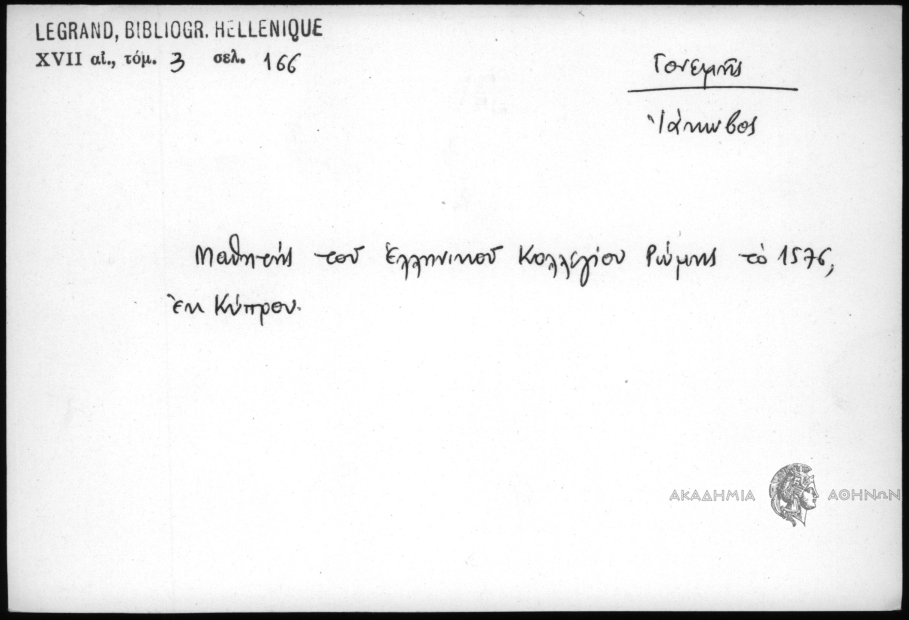 LEGRAND, BIBLIOGR. HELLENIQUE
XVII αἰ., τόμ. 3 σελ. 166
Γονεμῆς
Ἰάκωβος
Μαθητής τοῦ Ἑλληνικοῦ Κολλεγίου Ρώμης τὸ 1576,
ἐκ Κύπρου.
ΑΚΑΔΗΜΙΑ ΑΘΗΝΩΝ